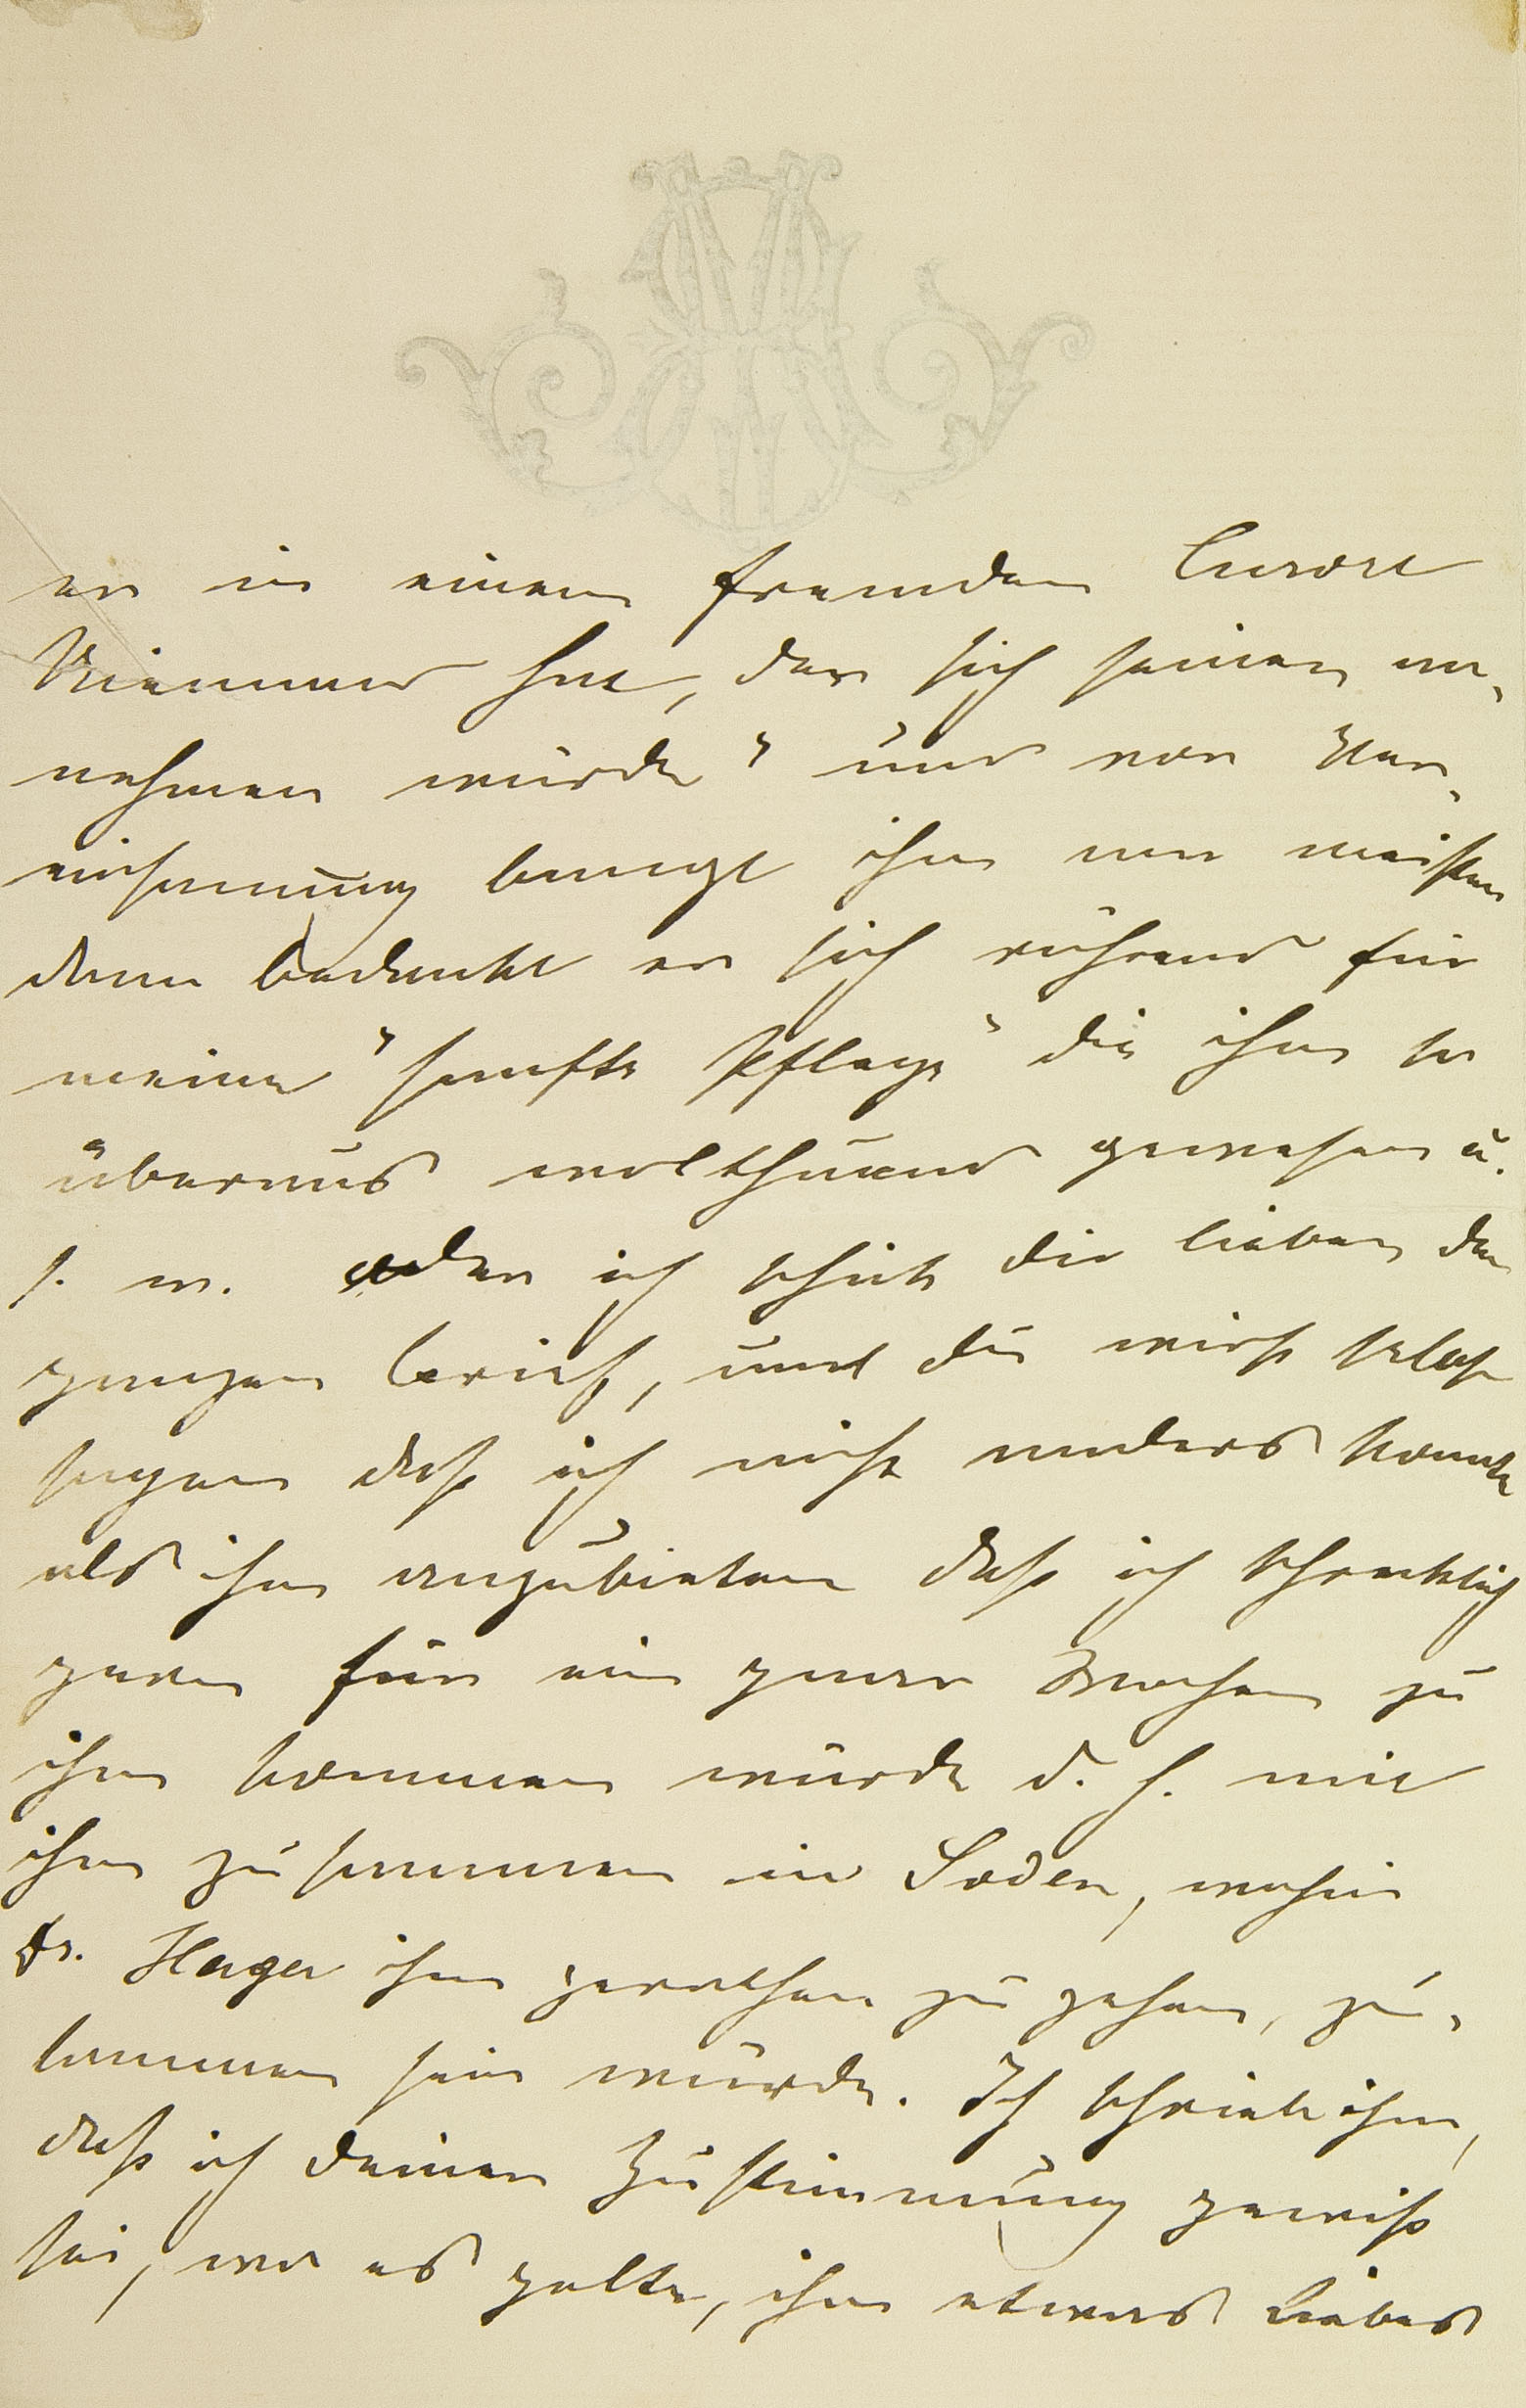 er in einem fremden Curort
Niemand hat, der sich seiner an-
nehmen würde" und vor Ver-
einsamung bangt ihm am meisten
dann bedankt er sich rührend für
meine "sanfte Pflege" die ihm so
überaus wolthuend gewesen u.
s. w. oder ich schick dir lieber den
ganzen Brief, und du wirst selbst
sagen daß ich nicht anders konnte
als ihm anzubieten daß ich schrecklich
gern für ein paar Wochen zu
ihm kommen würde d. h. mit
ihm zusammen in Soden, wohin
Dr. Hager ihm gerathen zu gehen, zu-
sammen sein würde. Ich schrieb ihm,
daß ich deiner Zustimmung gewiß
sei, wo es gelte, ihm etwas Liebes